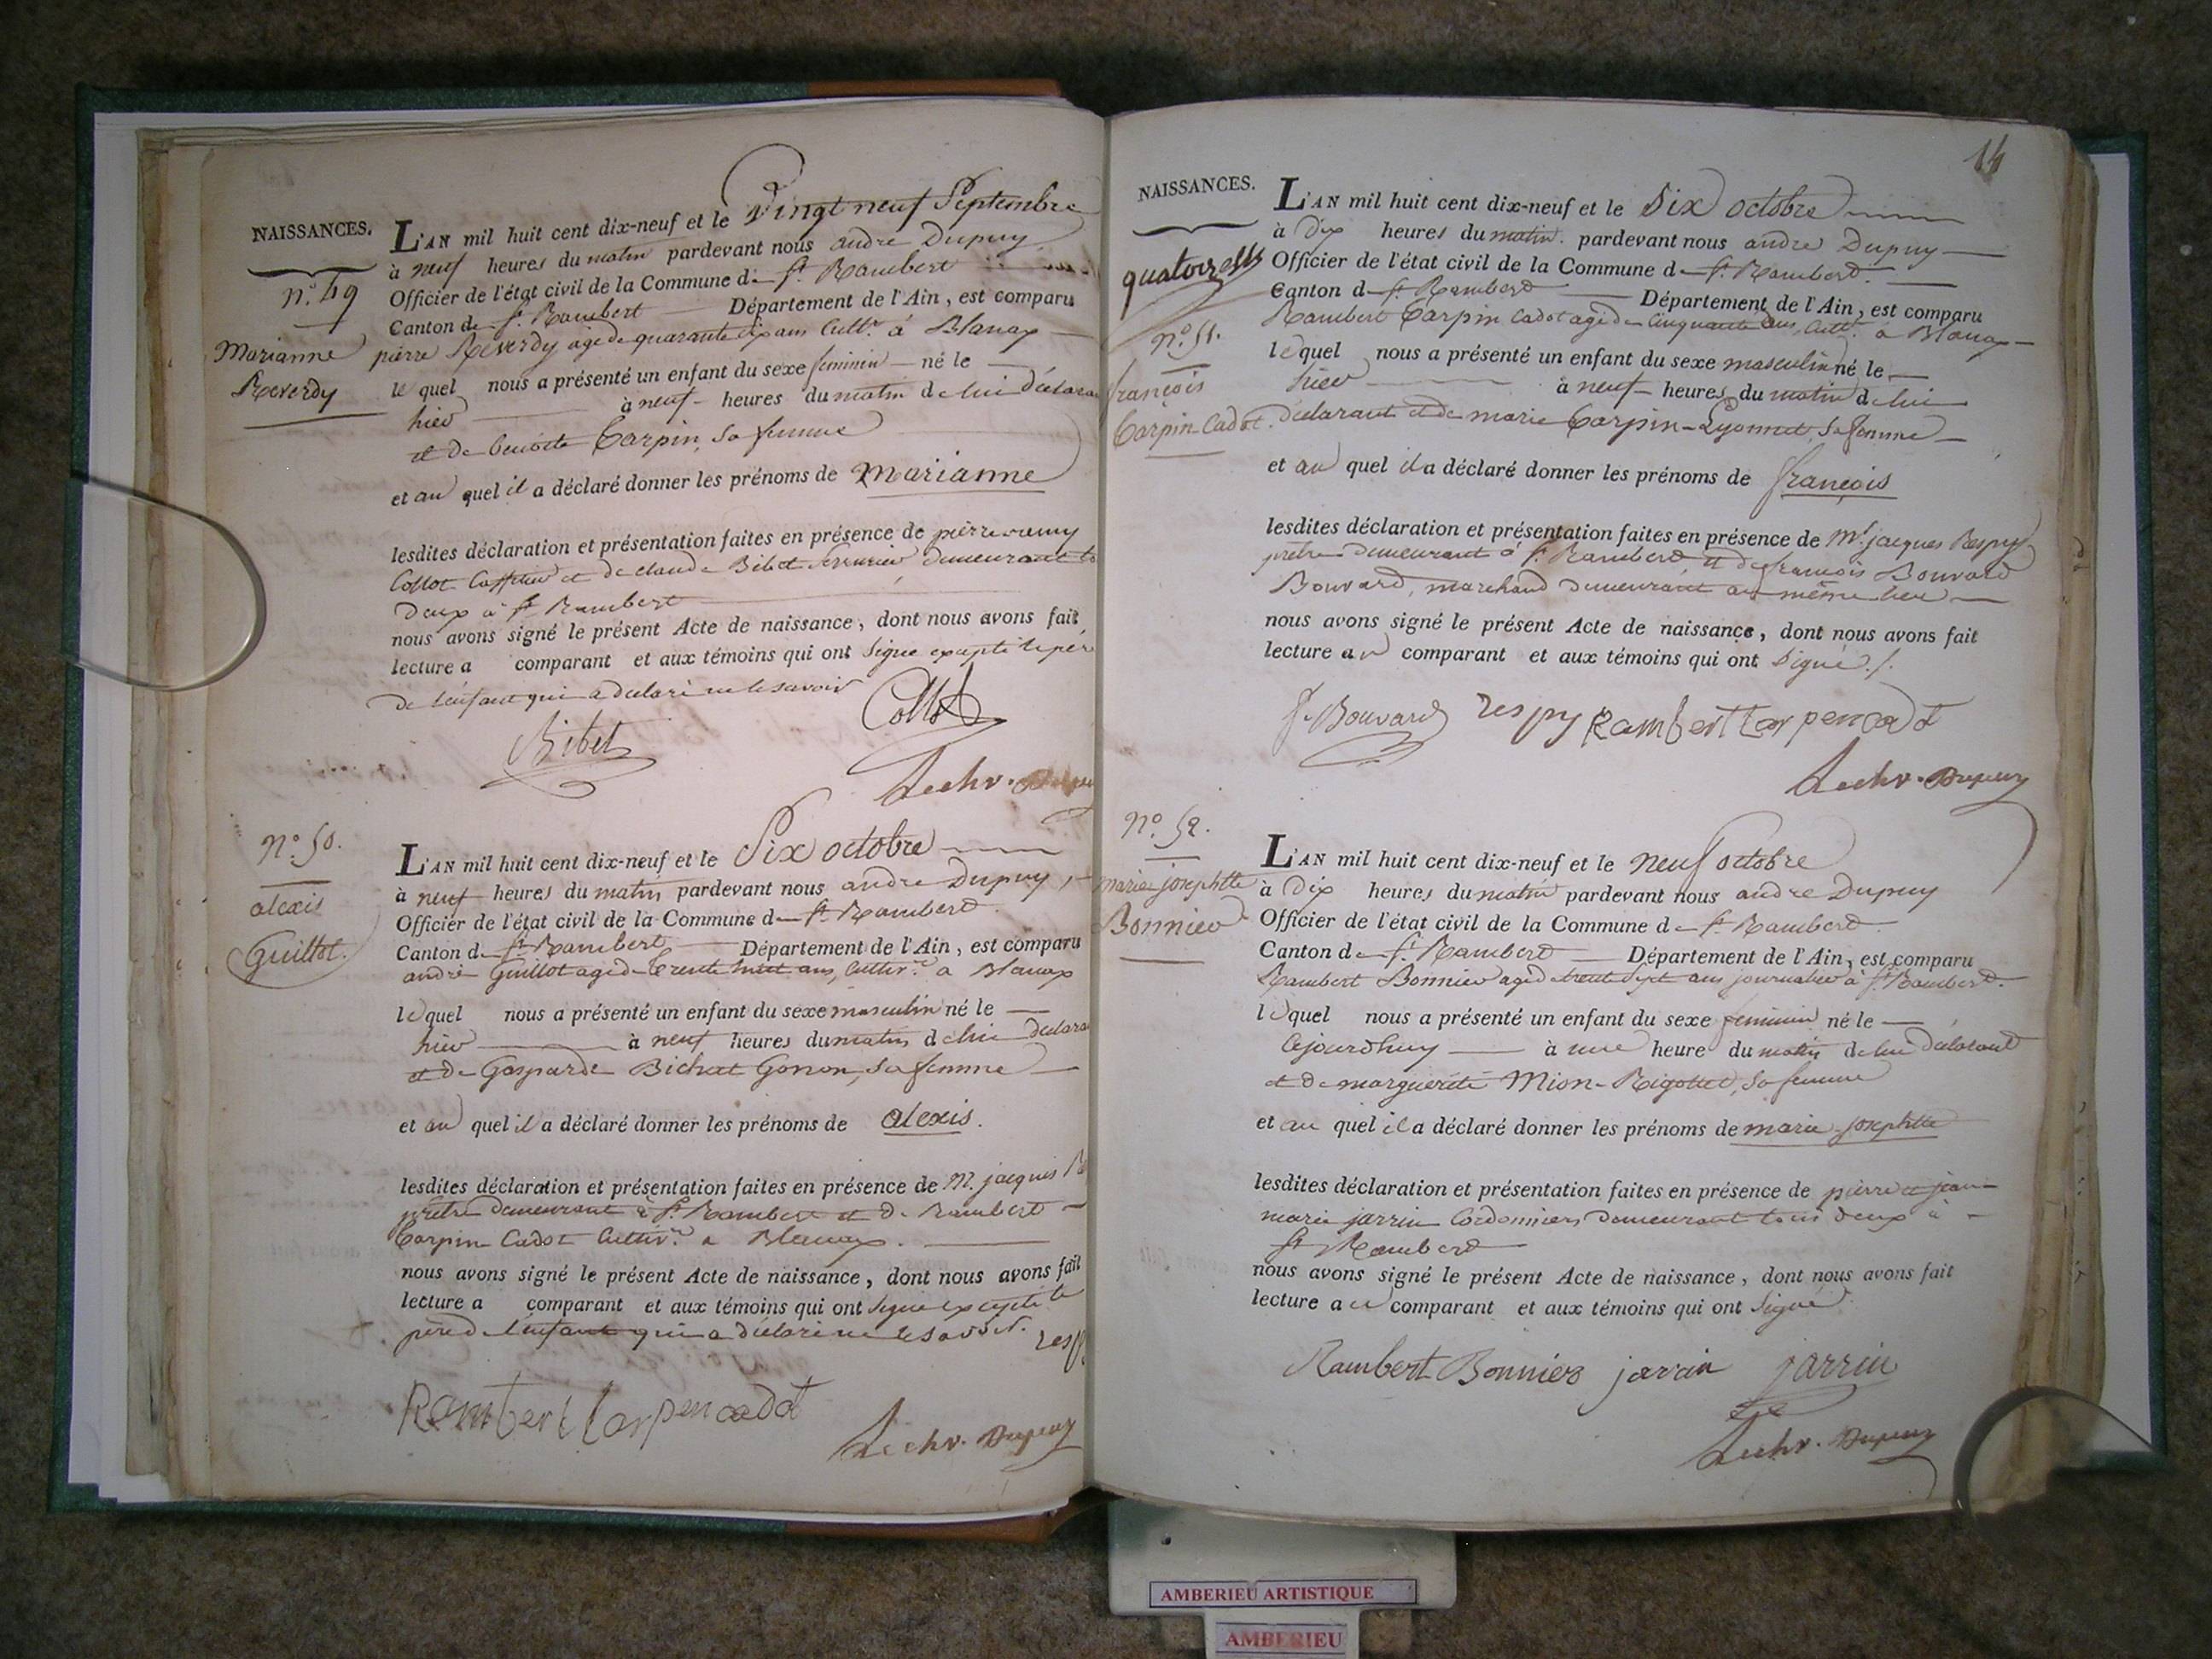 NAISSANCES.
n.° 49
Marianne
Reverdy
L'AN mil huit cent dix-neuf et le Vingt neuf Septembre
à neuf heures du matin pardevant nous andre Dupuy
Officier de l'état civil de la Commune de St. Rambert
Canton de St. Rambert Département de l'Ain, est comparu
pierre Reverdy agé de quarante six ans Cultr. à Blanaz
le quel nous a présenté un enfant du sexe feminin né le
hier à neuf heures du matin de lui déclara
et de benoite Carpin, sa femme
et au quel il a déclaré donner les prénoms de Marianne
lesdites déclaration et présentation faites en présence de pierre remy
Collot Caffetier et de claude Bibet Serrurier demeurant to
deux à St Rambert
nous avons signé le présent Acte de naissance, dont nous avons fait
lecture a comparant et aux témoins qui ont signé excepté le père
de l'enfant qui a déclaré ne le savoir
Collot
Bibet
Lechr. Dupuy
N.° 50.
alexis
Guillot.
L'AN mil huit cent dix-neuf et le Six octobre
à neuf heures du matin pardevant nous andre Dupuy,
Officier de l'état civil de la Commune de St. Rambert
Canton de St. Rambert Département de l'Ain, est comparu
andré Guillot agé de trente huit ans, cultivr. a Blanaz
lequel nous a présenté un enfant du sexe masculin né le
hier à neuf heures du matin de lui declara
et de Gasparde Bichat Gonon, sa femme
et au quel il a déclaré donner les prénoms de alexis.
lesdites déclaration et présentation faites en présence de M. jacques
prêtre demeurant à St. Rambert et de Rambert
Carpin Cadot Cultivr. a Blanaz.
nous avons signé le présent Acte de naissance, dont nous avons fait
lecture a comparant et aux témoins qui ont signé excepté le
père de l'enfant qui a déclaré ne le savoir.
Rambert Carpen cadot
Lechr. Dupuy
14
NAISSANCES.
quatorze
n.° 51.
françois
Carpin-Cadot.
L'AN mil huit cent dix-neuf et le Six octobre
à dix heures du matin pardevant nous andre Dupuy
Officier de l'état civil de la Commune de St. Rambert.
Canton de St. Rambert Département de l'Ain, est comparu
Rambert Carpin Cadot agé de Cinquante ans, Cultr. a Blanaz
lequel nous a présenté un enfant du sexe masculin né le
hier à neuf heures du matin de lui
déclarant et de marie Carpin-Lyonnet, sa femme
et au quel il a déclaré donner les prénoms de françois
lesdites déclaration et présentation faites en présence de Mr. jacques Respy
prêtre demeurant à St. Rambert et de françois Bouvard
Bouvard, marchand demeurant au même lieu
nous avons signé le présent Acte de naissance, dont nous avons fait
lecture au comparant et aux témoins qui ont signé./.
f. Bouvard respy Rambert Carpen cadot
Lechr. Dupuy
N.° 52.
marie josephtte
Bonnier
L'AN mil huit cent dix-neuf et le neuf octobre
à dix heures du matin pardevant nous andre Dupuy
Officier de l'état civil de la Commune de St. Rambert.
Canton de St. Rambert Département de l'Ain, est comparu
Rambert Bonnier agé de trente sept ans journalier à St. Rambert.
lequel nous a présenté un enfant du sexe feminin né le
Cejourdhuy à une heure du matin de lui déclarant
et de marguerite Mion-Rigollet, sa femme
et au quel il a déclaré donner les prénoms de marie josephtte
lesdites déclaration et présentation faites en présence de pierre et jean-
marie jarrin Cordonniers demeurant tous deux à
St Rambert
nous avons signé le présent Acte de naissance, dont nous avons fait
lecture au comparant et aux témoins qui ont signé
Rambert Bonnier jarrin jarrin
Lechr. Dupuy
AMBERIEU ARTISTIQUE
AMBERIEU